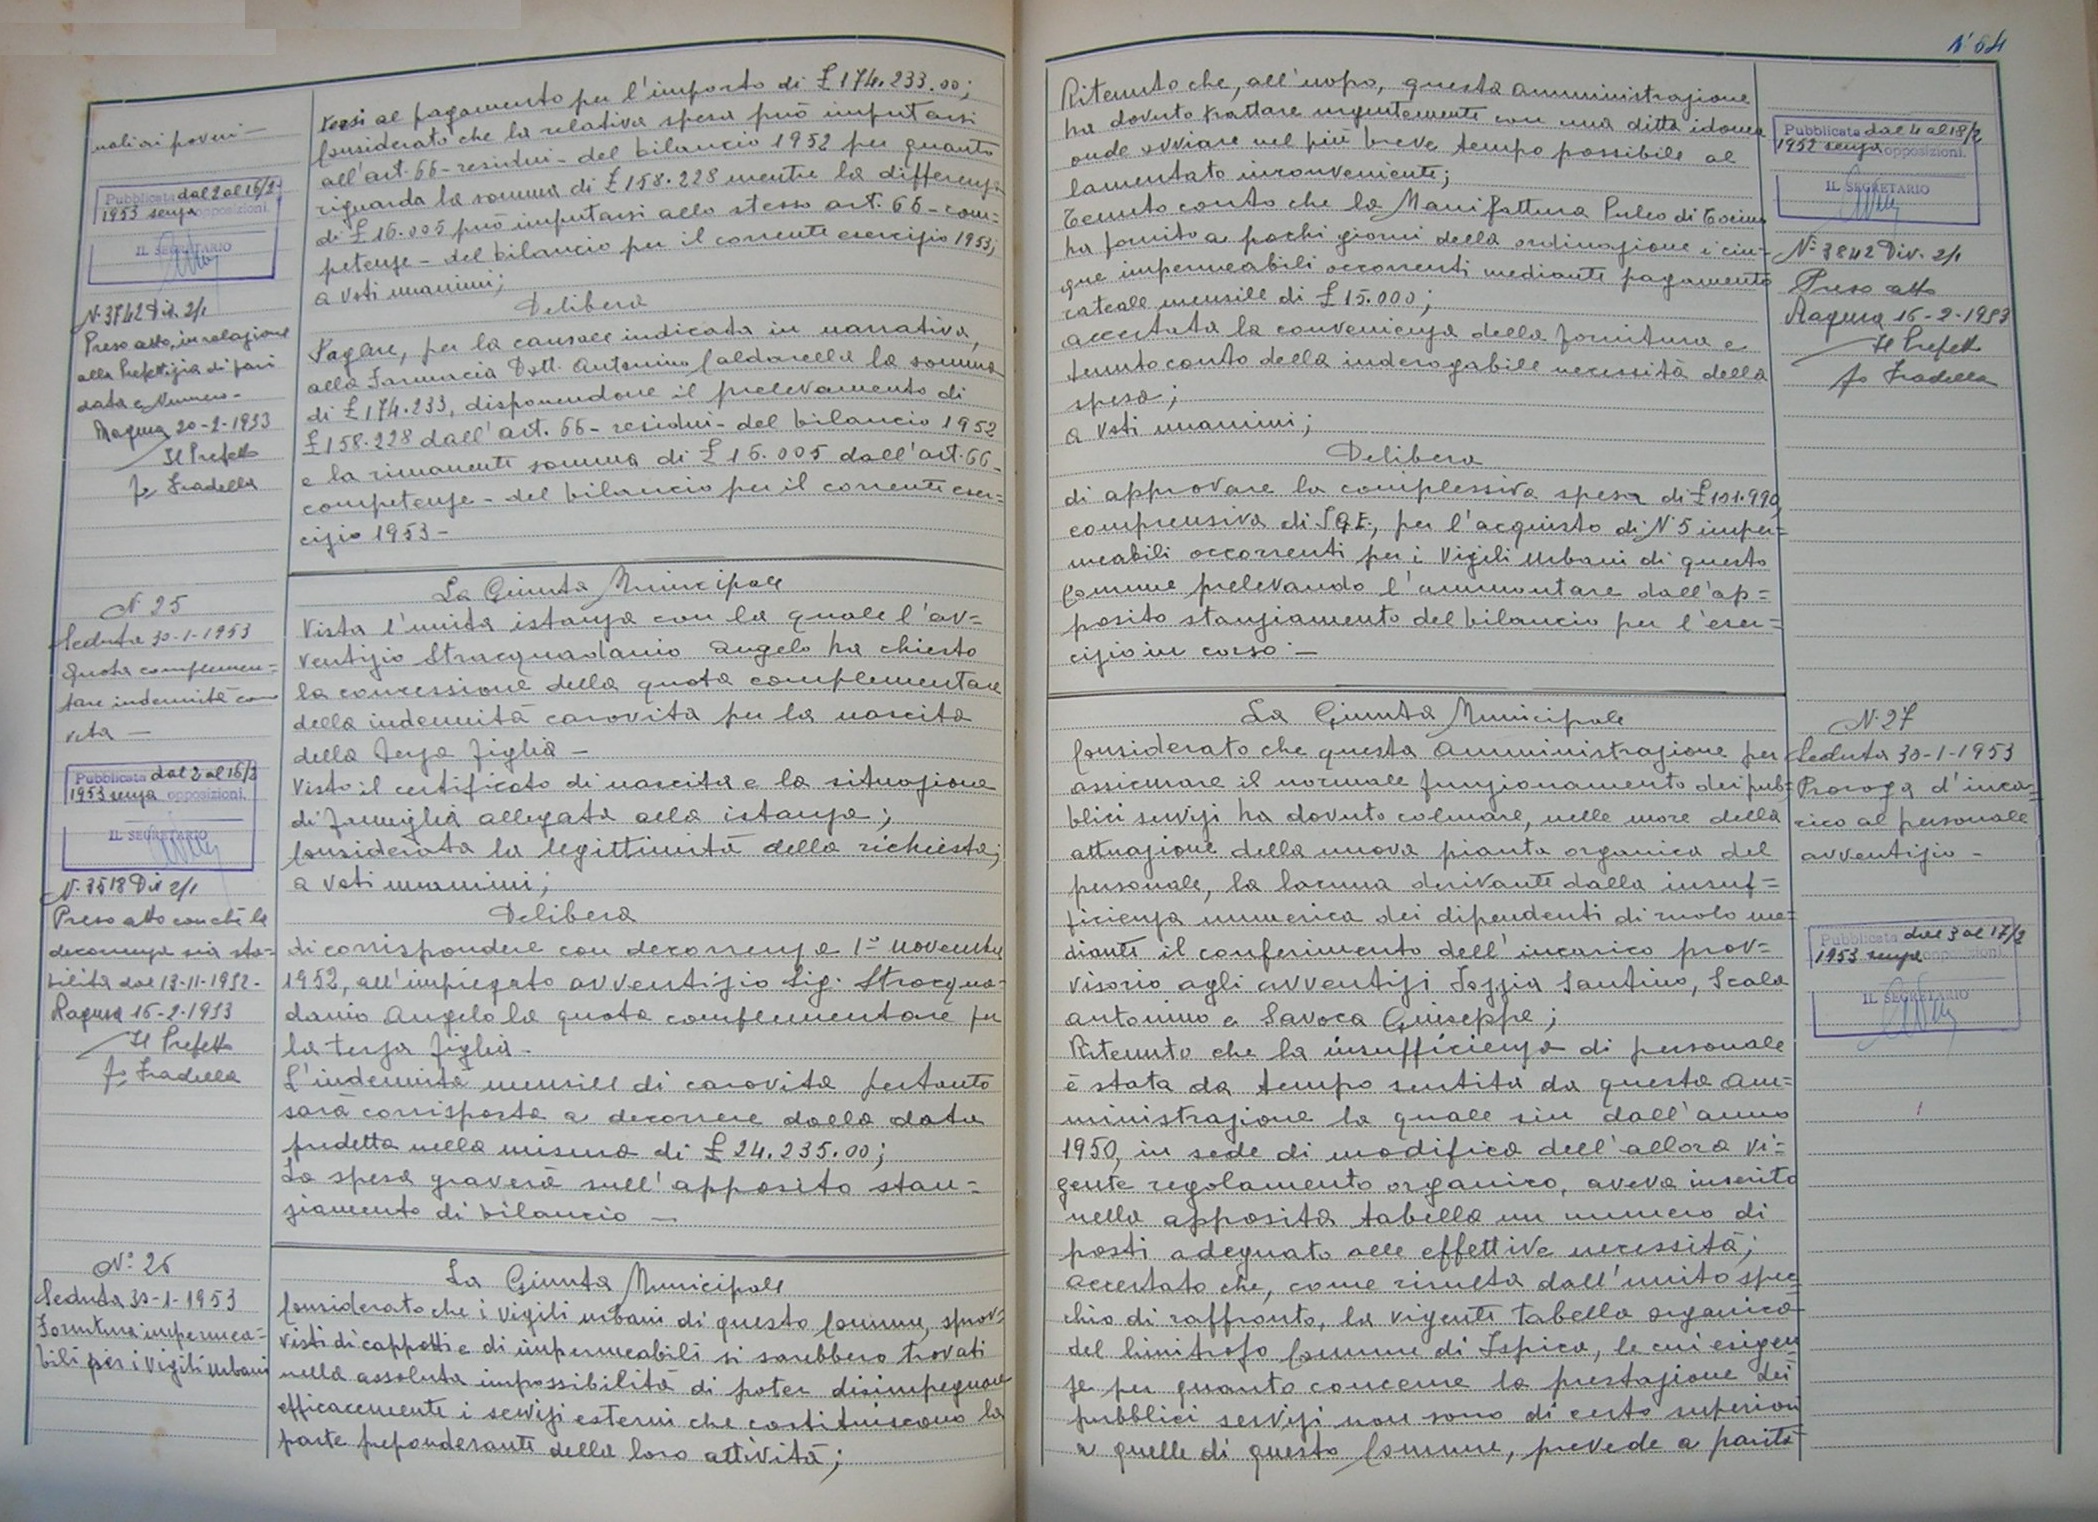 nali ai poveri —
Pubblicata dal 2 al 16/2
1953 senza opposizioni.
IL SEGRETARIO
N. 3742 Div. 2/1
Preso atto, in relazione
alla Prefettizia di pari
data e Numero -
Ragusa 20-2-1953
Il Prefetto
fo Fradella
N. 25
Seduta 30-1-1953
Quota complemen=
tare indennità caro
vita —
Pubblicata dal 2 al 16/2
1953 senza opposizioni.
IL SEGRETARIO
N. 3518 Div 2/1
Preso atto con chè la
decorrenza sia sta=
bilita dal 13-11-1952 -
Ragusa 16-2-1953
Il Prefetto
fo Fradella
N. 26
Seduta 30-1-1953
Fornitura impermea=
bili per i Vigili Urbani
al pagamento per l'importo di £ 174.233.00;
Considerato che la relativa spesa può imputarsi
all'art. 66 - residui - del bilancio 1952 per quanto
riguarda la somma di £ 158.228 mentre la differenza
di £ 16.005 può imputarsi allo stesso art. 66 - com=
petenze - del bilancio per il corrente esercizio 1953;
a voti unanimi;
Delibera
Pagare, per la causale indicata in narrativa,
alla Farmacia Dott. Antonino Caldarella la somma
di £ 174.233, disponendone il prelevamento di
£ 158.228 dall'art. 66 - residui - del bilancio 1952
e la rimanente somma di £ 16.005 dall'art. 66 -
competenze - del bilancio per il corrente eser=
cizio 1953 -
La Giunta Municipale
Vista l'unita istanza con la quale l'av=
ventizio Stracquadanio Angelo ha chiesto
la concessione della quota complementare
della indennità carovita per la nascita
della terza figlia -
Visto il certificato di nascita e la situazione
di famiglia allegata alla istanza;
Considerata la legittimità della richiesta;
a voti unanimi;
Delibera
di corrispondere con decorrenza 1° novembre
1952, all'impiegato avventizio Sig. Stracqua=
danio Angelo la quota complementare per
la terza figlia -
L'indennità mensile di carovita pertanto
sarà corrisposta a decorrere dalla data
predetta nella misura di £ 24.235.00;
La spesa graverà sull'apposito stan=
ziamento di bilancio —
La Giunta Municipale
Considerato che i Vigili urbani di questo Comune, sprov=
visti di cappotti e di impermeabili si sarebbero trovati
nella assoluta impossibilità di poter disimpegnare
efficacemente i servizi esterni che costituiscono la
parte preponderante della loro attività;
N° 64
Ritenuto che, all'uopo, questa Amministrazione
ha dovuto trattare urgentemente con una ditta idonea
onde ovviare nel più breve tempo possibile al
lamentato inconveniente;
Tenuto conto che la Manifattura di
ha fornito a pochi giorni della ordinazione i cin=
que impermeabili occorrenti mediante pagamento
rateale mensile di £ 15.000;
Accertata la convenienza della fornitura e
tenuto conto della inderogabile necessità della
spesa;
a voti unanimi;
Delibera
di approvare la complessiva spesa di £ 101.990
comprensiva di I.G.E., per l'acquisto di N 5 imper=
meabili occorrenti per i Vigili Urbani di questo
Comune prelevando l'ammontare dall'ap=
posito stanziamento del bilancio per l'eser=
cizio in corso. —
La Giunta Municipale
Considerato che questa Amministrazione per
assicurare il normale funzionamento dei pub=
blici servizi ha dovuto colmare, nelle more della
attuazione della nuova pianta organica del
personale, la lacuna derivante dalla insuf=
ficienza numerica dei dipendenti di ruolo me=
diante il conferimento dell'incarico prov=
visorio agli avventizi Santino, Scala
Antonino e Savoca Giuseppe;
Ritenuto che la insufficienza di personale
è stata da tempo sentita da questa Am=
ministrazione la quale sin dall'anno
1950, in sede di modifica dell'allora vi=
gente regolamento organico, aveva inserito
nella apposita tabella un numero di
posti adeguato alle effettive necessità;
Accertato che, come risulta dall'unito spec=
chio di raffronto, la vigente tabella organica
del limitrofo Comune di Ispica, le cui esigen
ze per quanto concerne la prestazione dei
pubblici servizi non sono di certo superiori
a quelle di questo Comune, prevede a parità
Pubblicata dal 4 al 18/2
1952 senza opposizioni.
IL SEGRETARIO
N. 3842 Div. 2/1
Preso atto
Ragusa 16-2-1953
Il Prefetto
fo Fradella
N. 27
Seduta 30-1-1953
Proroga d'inca=
rico al personale
avventizio -
Pubblicata dal 3 al 17/2
1953 senza opposizioni.
IL SEGRETARIO